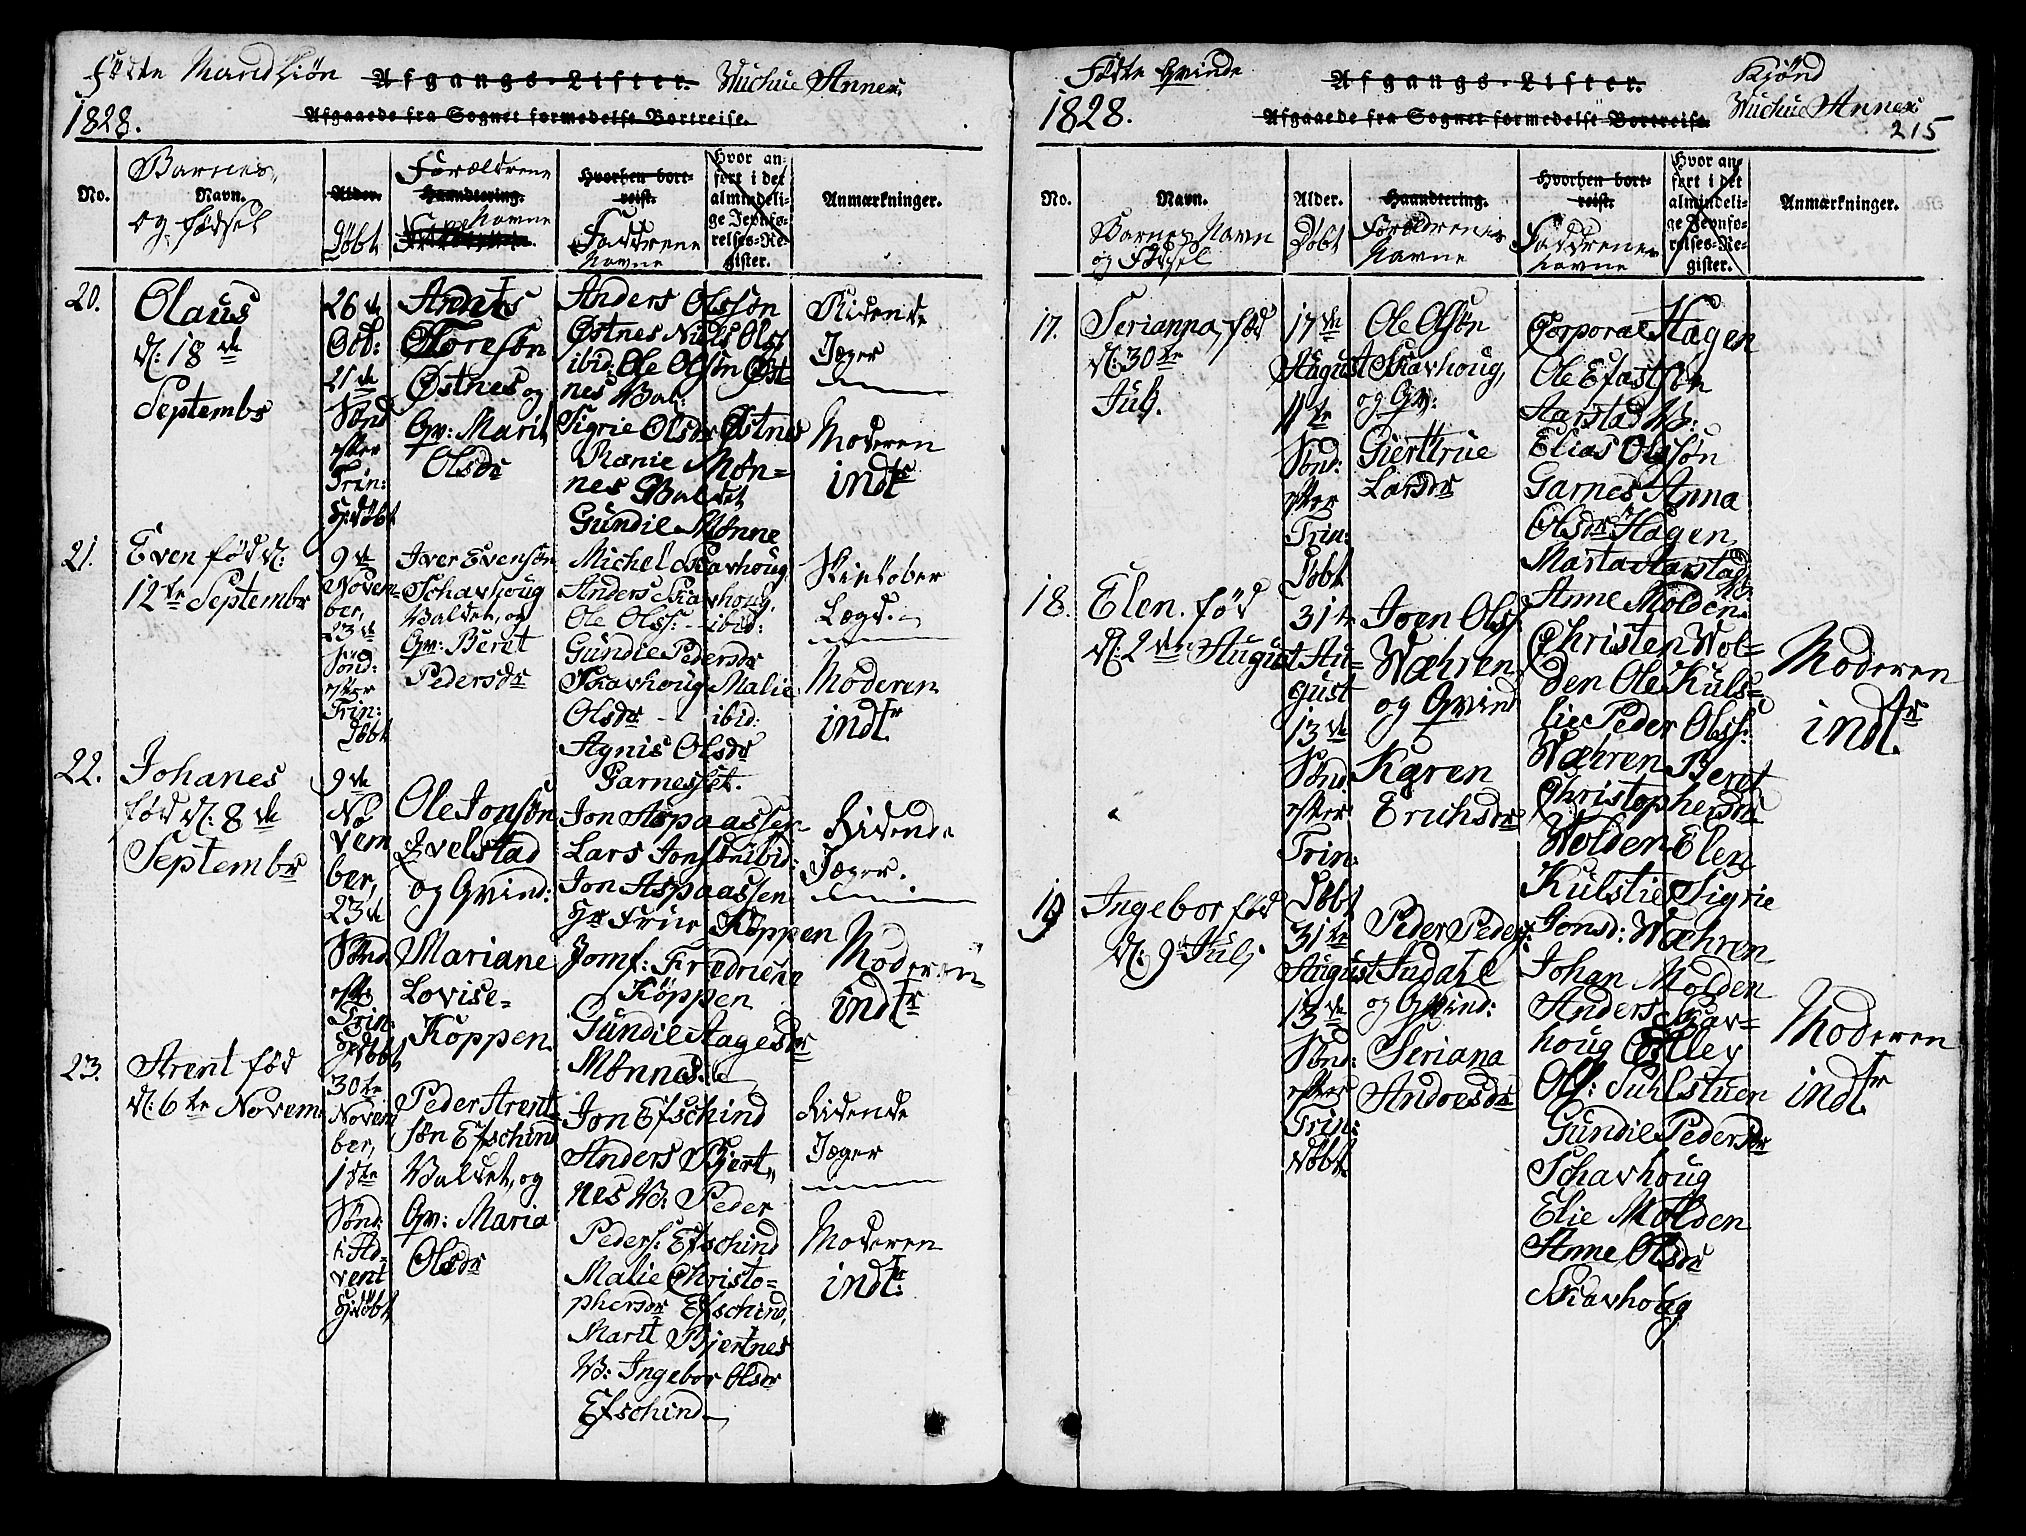 Fødte Mandkiøn Afgangs-Lister. Vuchue Annex.
1828. Afgaaede fra Sognet formedelst Bortreise.
No.
Barnes
Navn.
og fødsel
Alder.
Døbt
Forældrene
Haandtering.
Navne
Hvorhen bort-
reist.
Faddrene
Navne
Hvor an-
ført i det
almindeli-
ge Jevnfø-
relses-Re-
gister.
Anmærkninger.
20.
Olaus
d: 18de
Septembr
26de
Octb:
21de
Sønd
efter
Trin:
Hjdøbt
Anders
Toresøn
Østnes og
Qv: Marit
Olsdr
Anders Olssøn
Østnes Niels Ols:
ibid: Ole Olsøn Øst-
nes Val:
Sigrie Olsdr Østnes
Ranie Møn-
nes Valdet
Gundil Mønne
Ridende
Jæger
Moderen
indtr
21.
Even fød d:
12te Septembr
9de
Novem-
ber,
23de
Sønd:
efter
Trin:
Døbt
Iver Evensøn
Schavhoug
Valdet, og
Qv: Beret
Pedersdr
Michel Skavhoug
Anders Skavhoug,
Ole Olss: - ibid:
Gundil Pedersdr
Skavhoug Malie
Olsdr - ibid:
Agnis Olsdr
Garnesset.
Skieløber
Lægd.
Moderen
indtr
22.
Johanes
fød d: 8de
Septembr
9de
No
vem
ber,
23de
Sønd
eftr
Trin:
Hjdøbt
Ole Jonsøn
Ivelstad
og Qvind:
Mariane
Lovise
Köppen.
Jon Aspaassen
Lars Jonsøn ibid:
Jon Aspaassen
Hr Frue Köppen
Jomf: Fredriche
Köppen
Gundil Aagesdr
Mønnes.
Ridende
Jæger.
Moderen
indtr
23.
Arent fød
d: 6te Novem
30te
Novem
ber,
1ste
Sønd:
i Ad-
vent
Hjdøbt
Peder Arent
søn Efschind
Valdet, og
Qv: Maria
Olsdr
Jon Efschind
Anders Bjert-
nes V: Peder
Peders: Efschind
Malie Christo-
phersdr Efschind,
Marit Bjertnes
V: Ingebor Olsdr
Efschind
Ridende
Jæger
Moderen
indtr
Fødte Qvinde Afgangs-Lister. Kjønd
1828. Afgaaede fra Sognet formedelst Bortreise. Vuchue Annex:
215
No.
Navn.
Barnes Navn
og Fødsel
Alder.
Døbt
Haandtering.
Forældrenes
Navne
Hvorhen bort-
reist.
Faddrenes
Navne
Hvor an
ført i det
almindeli-
ge Jevnfø-
relses-Re-
gister.
Anmærkninger.
17.
Serianna, fød
d: 30te
Julj.
17de
August
11te
Sønd:
efter
Trin:
Døbt
Ole Olsøn
Skavhoug,
og Qv:
Gierttrue
Larsdr
Corporal Hagen
Ole
Aarstad V:
Elias Olssøn
Garnes Anna
Olsdr Hagen
Marta Aarstad
18.
Elen. fød
d: 2den August
31te
Au-
gust
13de
Sønd
efter
Trin:
Døbt
Joen Olss:
Wæhren
og Qvind
Karen
Erichsdr
Anne Molden
Christen Vol-
den Ole Kuls-
lie Peder Olss:
Wæhren Beret
Christophersdr
Volden Elen
Kulstie Sigrie
Jonsd: Wæhren
Moderen
indtr
19
Ingebor fød
d: 9de Julj
31te
August
13de
Sønd:
efter
Trin:
Døbt
Peder Peders:
Indahl
og Qvind:
Seriana
Andresdr
Johan Molden
Anders Skav-
houg Estley
Ols: Suhlstuen
Gundil Pedersdr
Schavhoug
Elie Molden
Anne Olsdr
Skavhoug
Moderen
indtr